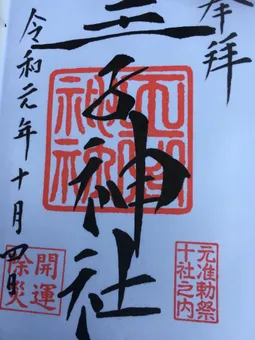 奉拝
王子神社
令和元年十月四日
元准勅祭
十社之内
開運
除災